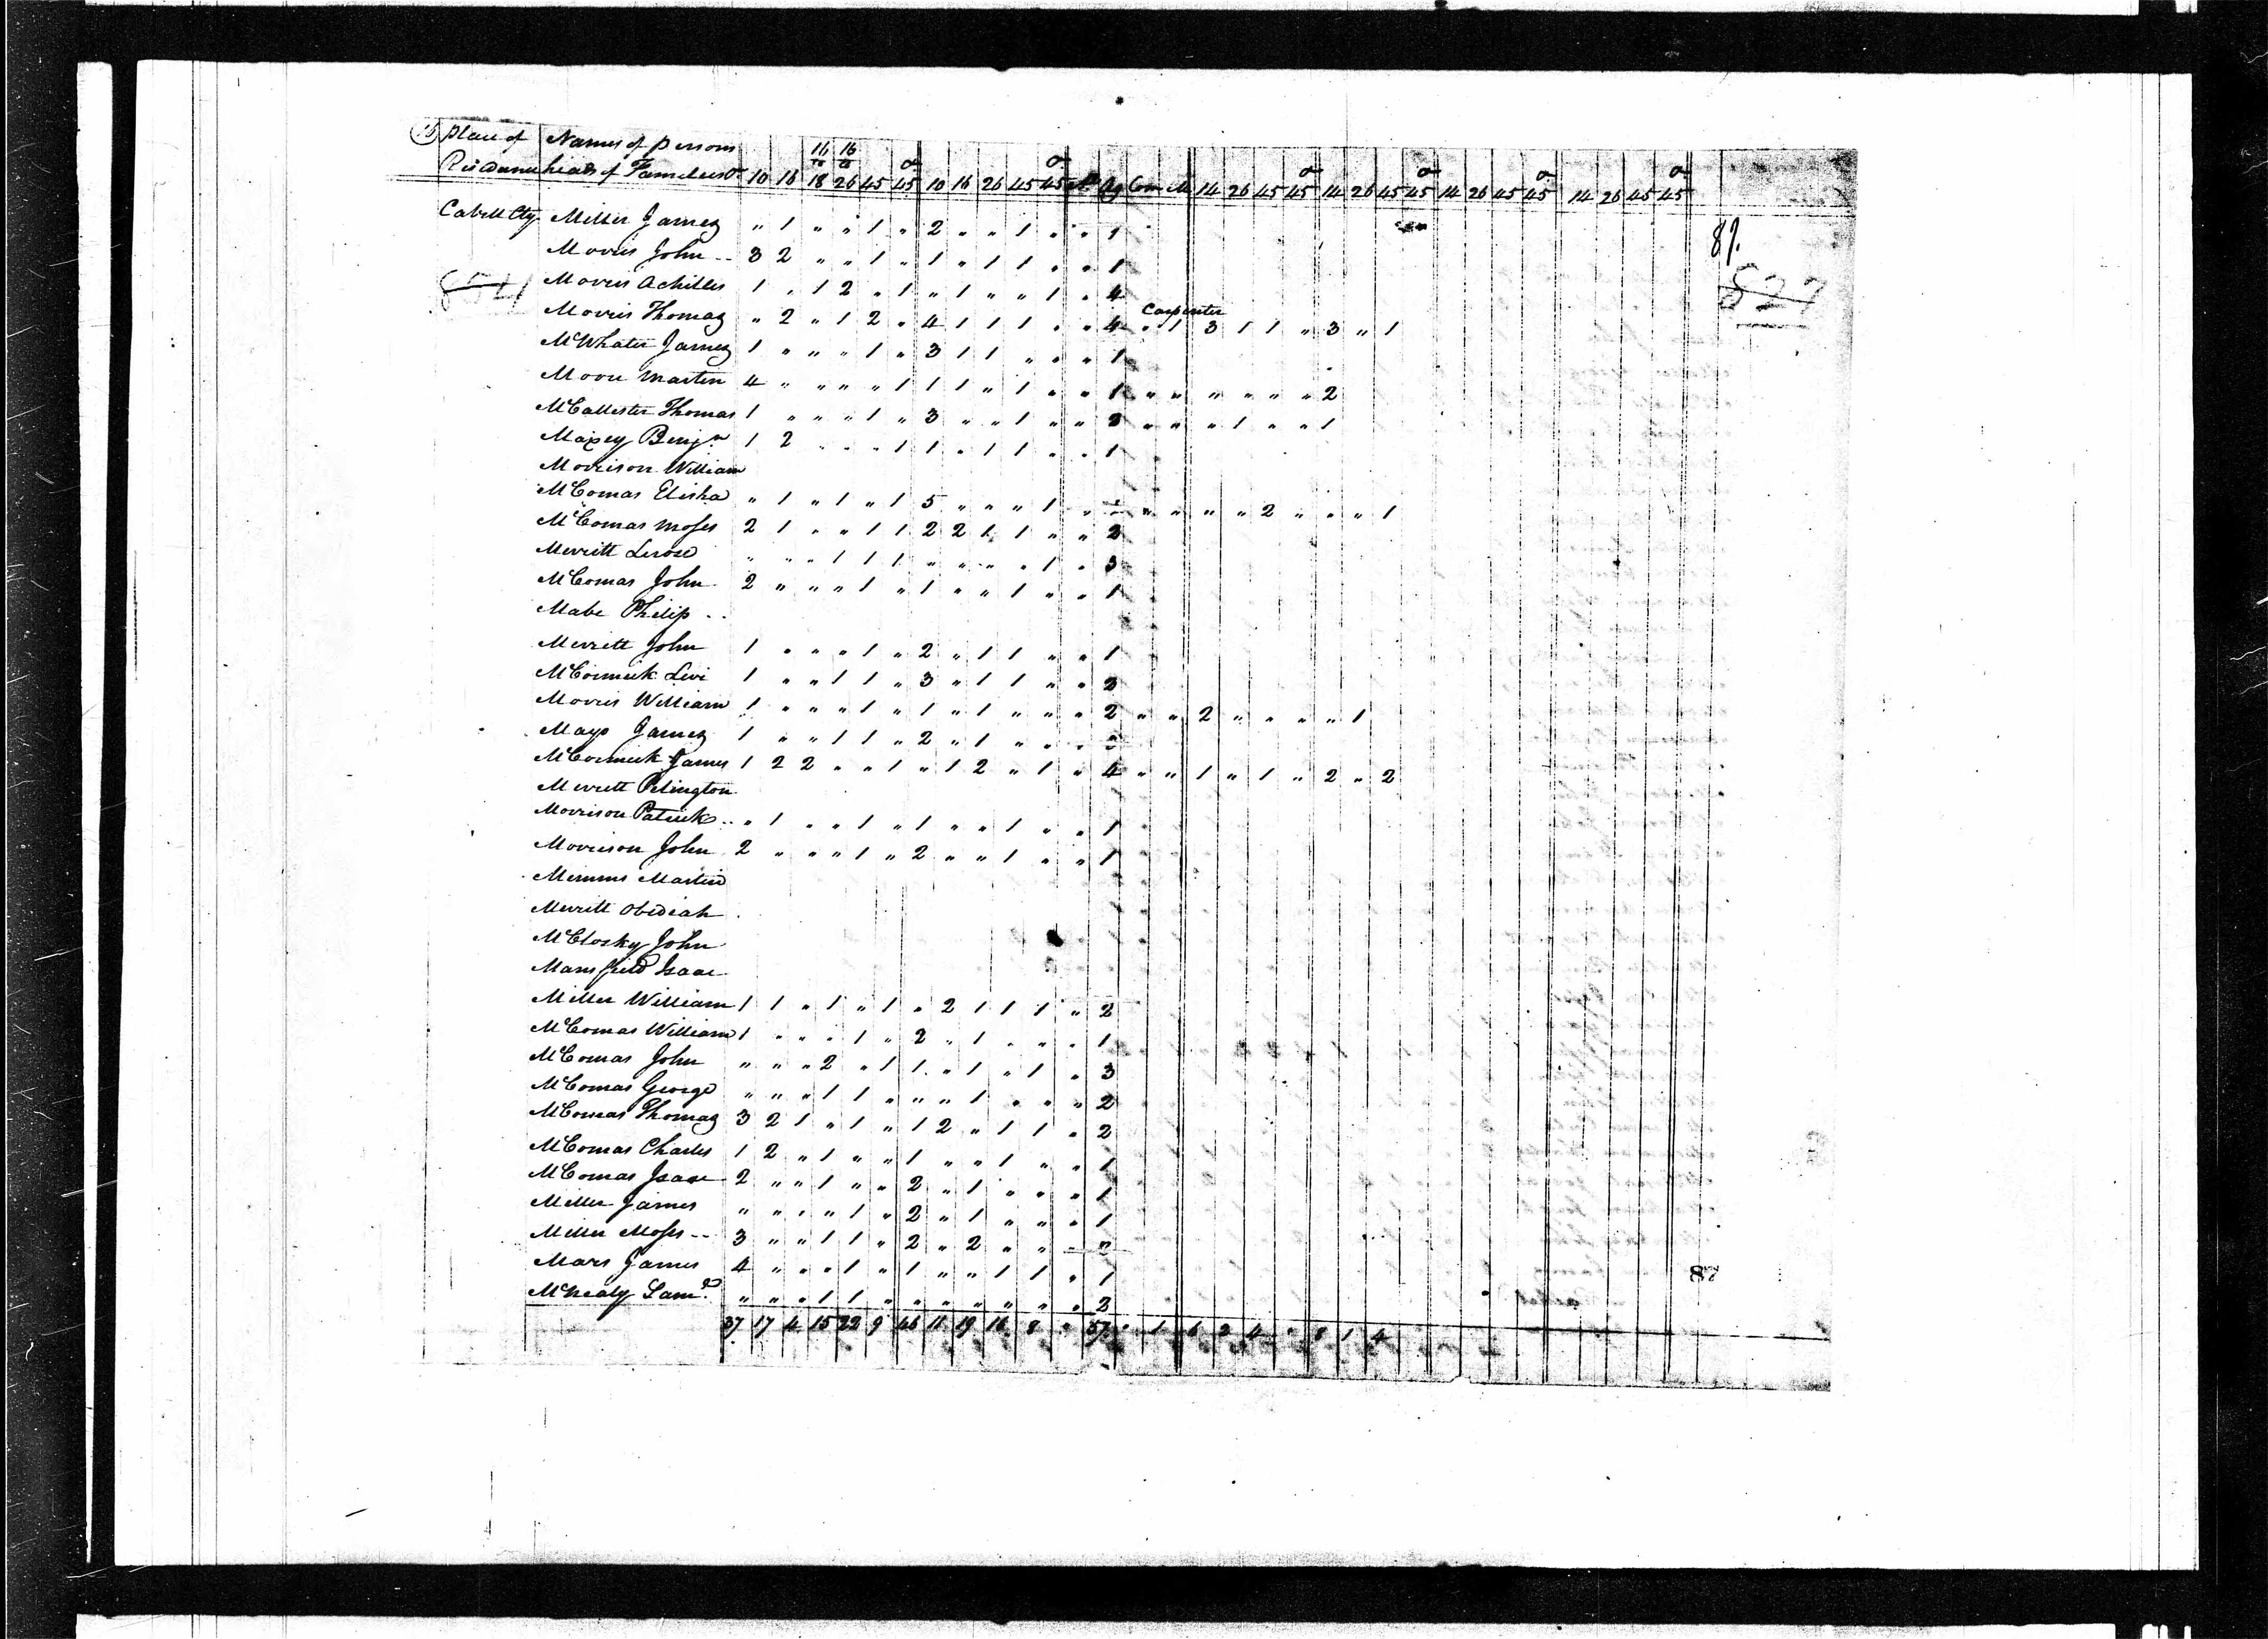 Place of Names of persons 16 16
to to
Residence heads of Families 10 16 18 26 45 45 10 16 26 45 45 Ag Com M 14 26 45 45 14 26 45 45 14 26 45 45 14 26 45 45
Cabell Cty Miller James " 1 " " 1 " 2 " " 1 " " 1
87.
Morris John -- 3 2 " " 1 " 1 " 1 1 " " 1
Morris Achilles 1 " 1 2 " 1 " 1 " " 1 " 4
827
Carpenter
Morris Thomas " 2 " 1 2 " 4 1 1 1 " " 4 " 1 3 1 1 " 3 " 1
McWhater James 1 " " " 1 " 3 1 1 " " " 1
Moore Martin 4 " " " " 1 1 1 " 1 " " 1 " " " " " " 2
McCallester Thomas 1 " " " 1 " 3 " " 1 " " 2 " " " 1 " " 1
Maxey Benjn 1 2 " " " 1 1 " 1 1 " " 1
Morrison William
McComas Elisha " 1 " 1 " 1 5 " " " 1 " " " " " 2 " " " 1
McComas Moses 2 1 " " 1 1 2 2 1 1 " " 2
Merritt " " " 1 1 1 " " " " 1 " 3
McComas John 2 " " " 1 " 1 " " 1 " " 1
Mabe Philip --
Merrett John 1 " " " 1 " 2 " 1 1 " " 1
McCormick Levi 1 " " 1 1 " 3 " 1 1 " " 2
Morris William 1 " " " 1 " 1 " 1 " " " 2 " " 2 " " " " 1
Mayo James 1 " " 1 1 " 2 " 1 " " " 2
McCormick James 1 2 2 " " 1 " 1 2 " 1 " 4 " " 1 " 1 " 2 " 2
Merrett Pelington
Morrison Patrick " 1 " " 1 " 1 " " 1 " " 1
Morrison John 2 " " " 1 " 2 " " 1 " " 1
Mimms Martin
Merritt Obediah
McClosky John
Mansfield Isaac
Miller William 1 1 " 1 " 1 " 2 1 1 1 " 2
McComas William 1 " " " 1 " 2 " 1 " " " 1
McComas John " " " 2 " 1 1 " 1 " 1 " 3
McComas George " " " 1 1 " " " 1 " " " 2
McComas Thomas 3 2 1 " 1 " 1 2 " 1 1 " 2
McComas Charles 1 2 " 1 " " 1 " " 1 " " 1
McComas Isaac 2 " " 1 " " 2 " 1 " " " 1
Miller James " " " " 1 " 2 " 1 " " " 1
Miller Moses -- 3 " " 1 1 " 2 " 2 " " " 2
Mars James 4 " " " 1 " 1 " " 1 1 " 1
87
McNealy Saml " " " 1 1 " " " " " " " 2
37 17 4 15 22 9 46 11 19 16 8 " 57 " 1 6 2 4 " 8 1 4